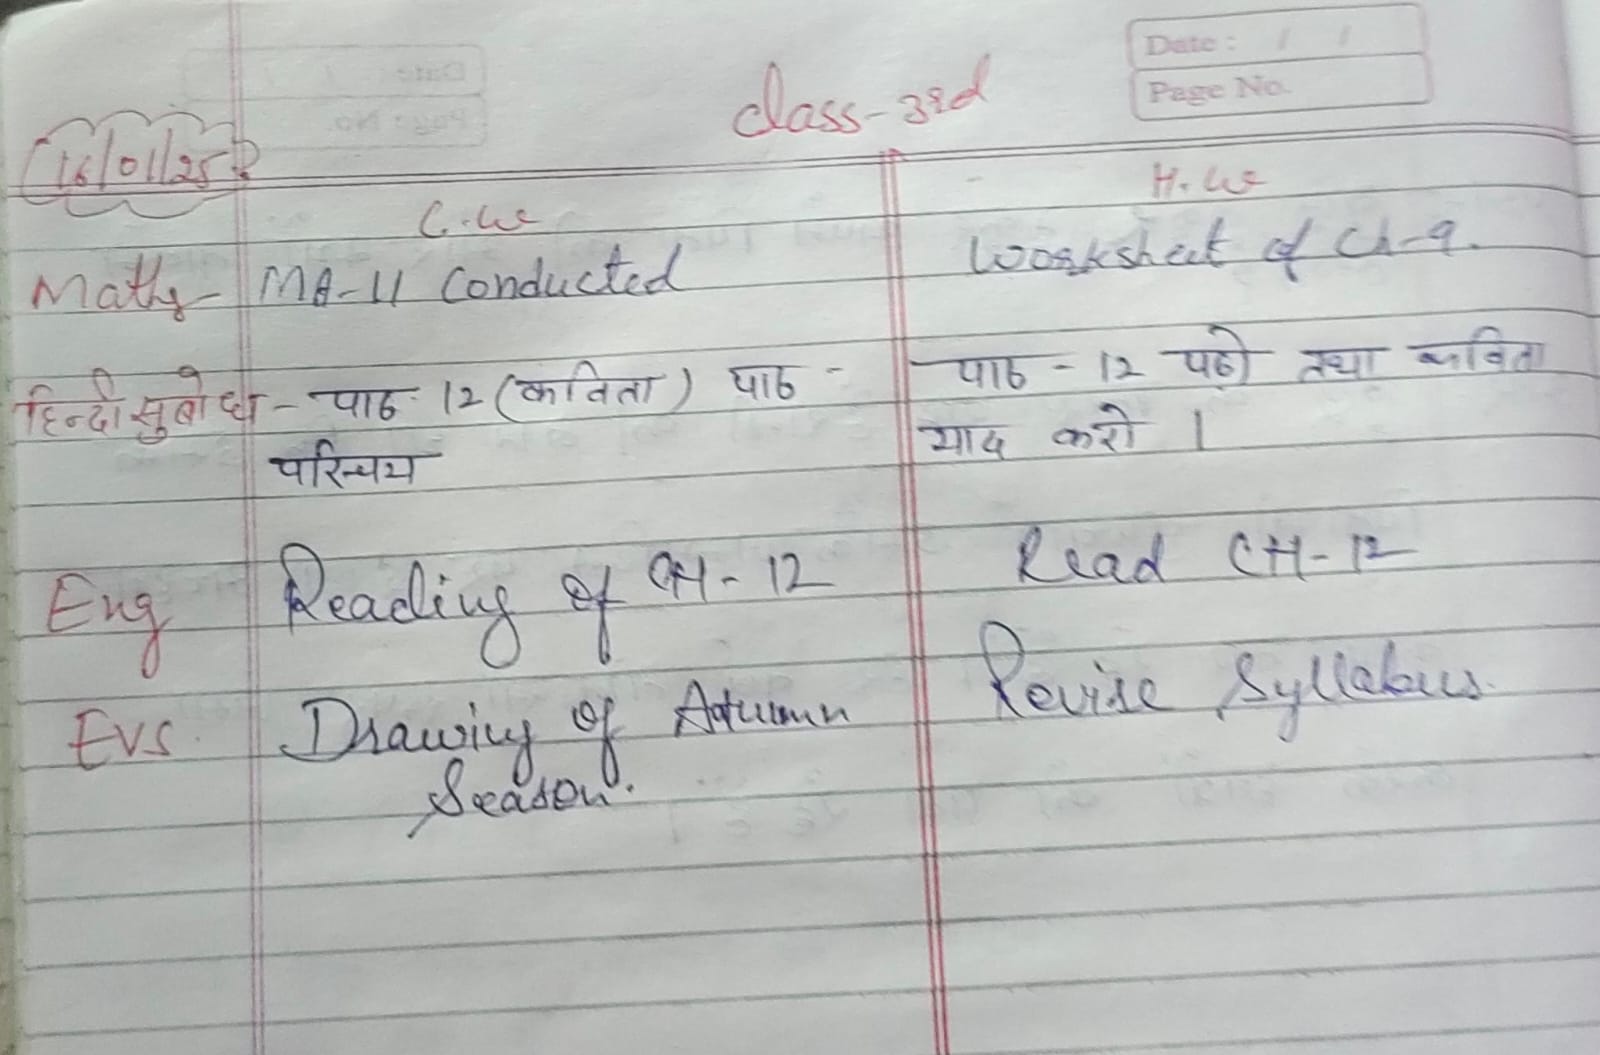 Date : / /
Page No.
class-3rd
16/01/25
C.w
H.w
Maths - MA-II Conducted
Worksheet of Ch-9.
हिन्दी सुबोध - पाठ 12 (कविता) पाठ -
परिचय
पाठ - 12 पढ़ो तथा कविता
याद करो ।
Eng Reading of CH-12
Read CH-12
EVS. Drawing of Autumn
Season.
Revise Syllabus.